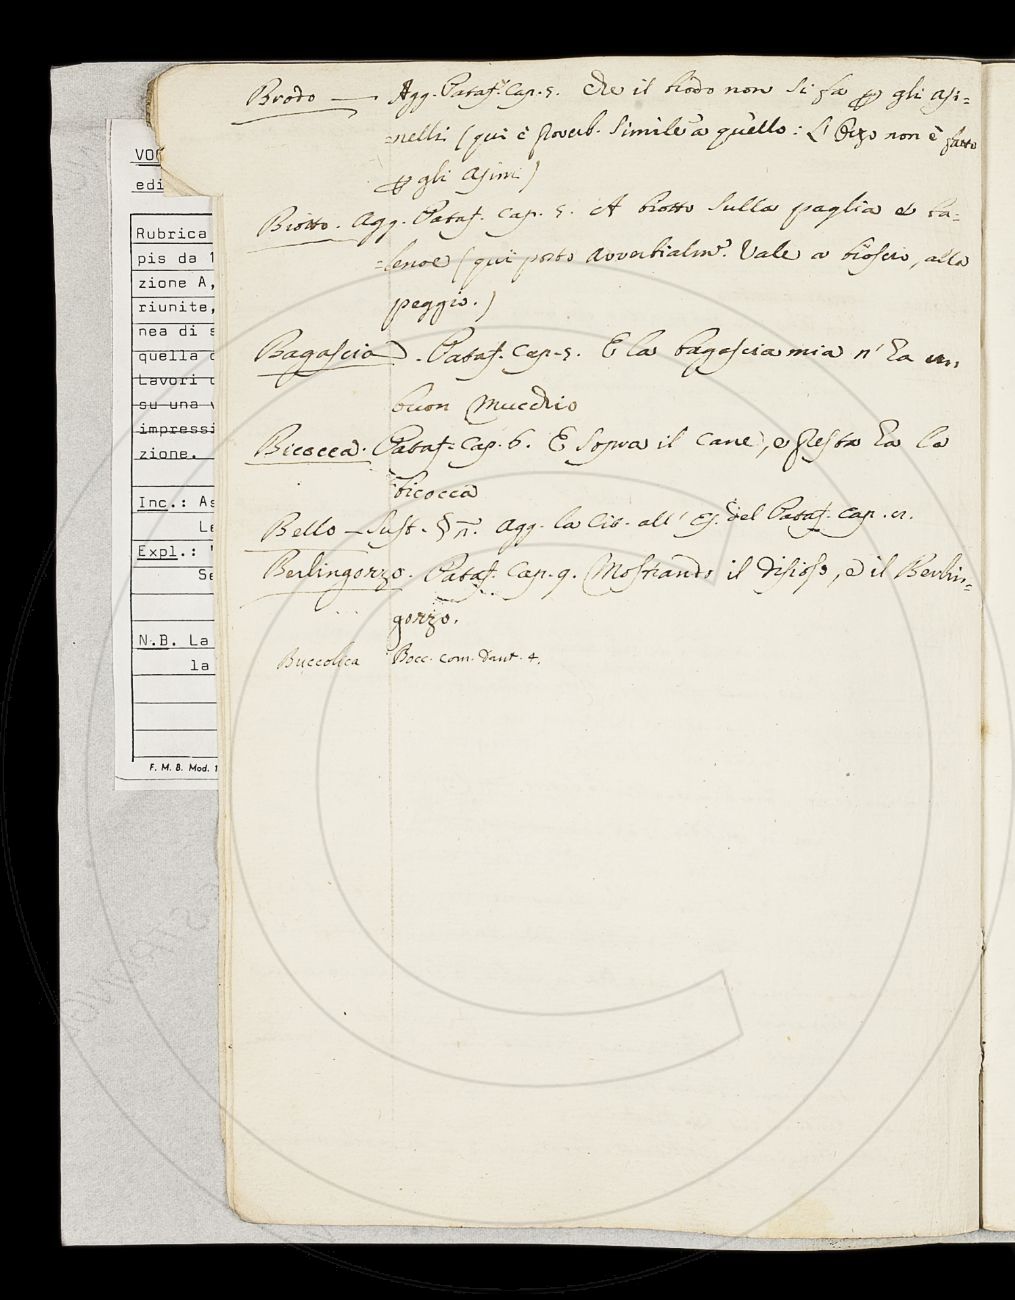 Brodo — Agg. Pataf. Cap. 5. Che il brodo non si fa p gli asi=
=nelli (qui è proverb. simile a quello: L'Orzo non è fatto
p gli asini)
Biotto. Agg. Pataf. Cap. 5. A biotto sulla paglia e ba=
(qui posto avverbialm.e Vale a bioscio, alla
peggio.)
Bagascia. Pataf. Cap. 5. E la bagascia mia n'ha un
buon mucchio
Bicocca. Pataf. Cap. 6. E sopra il cane, e presta ha la
bicocca
Bello — Sust. § n. Agg. la Cit. all' Es. del Pataf. Cap.
Berlingozzo. Pataf. Cap. 9. Mostrando il disioso, e il Berlin=
gozzo.
Buccolica Bocc. com. Dant. 4.
VO
edi
Rubrica
pis da 1
zione A,
riunite,
nea di s
quella d
Lavori
su una v
impressi
zione.
Inc.: As
Le
Expl.: "
Se
N.B. La
la
F. M. B. Mod. 1